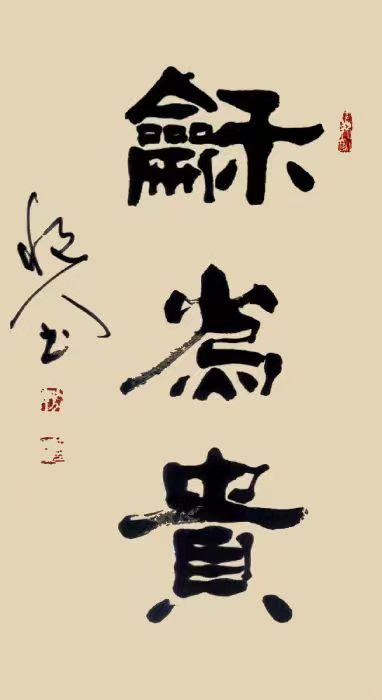 龢為貴